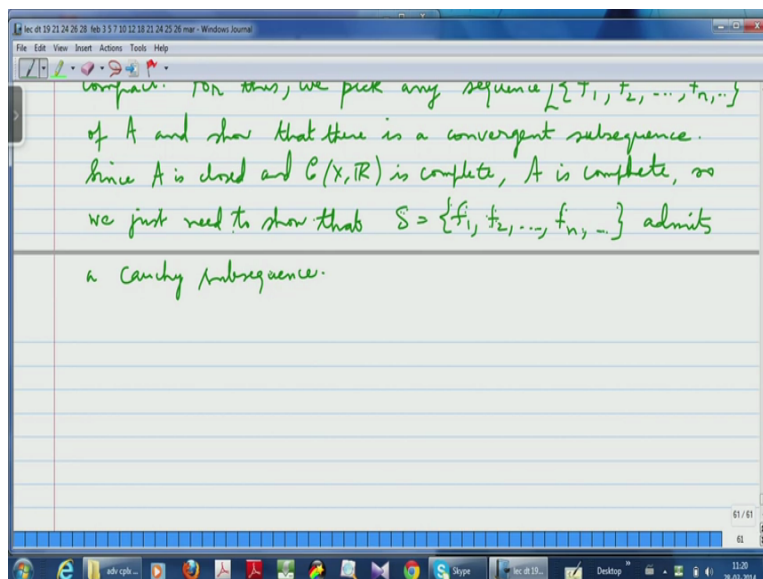 lec dt 19 21 24 26 28 feb 3 5 7 10 12 18 21 24 25 26 mar - Windows Journal
File Edit View Insert Actions Tools Help
compact. For this, we pick any sequence {f1, f2, ..., fn, ..}
of A and show that there is a convergent subsequence.
Since A is closed and C(X, ℝ) is complete, A is complete, so
we just need to show that S = {f1, f2, ..., fn, ..} admits
a Cauchy subsequence.
61 / 61
61
adv cplx ...
Skype
lec dt 19...
Desktop
11:20